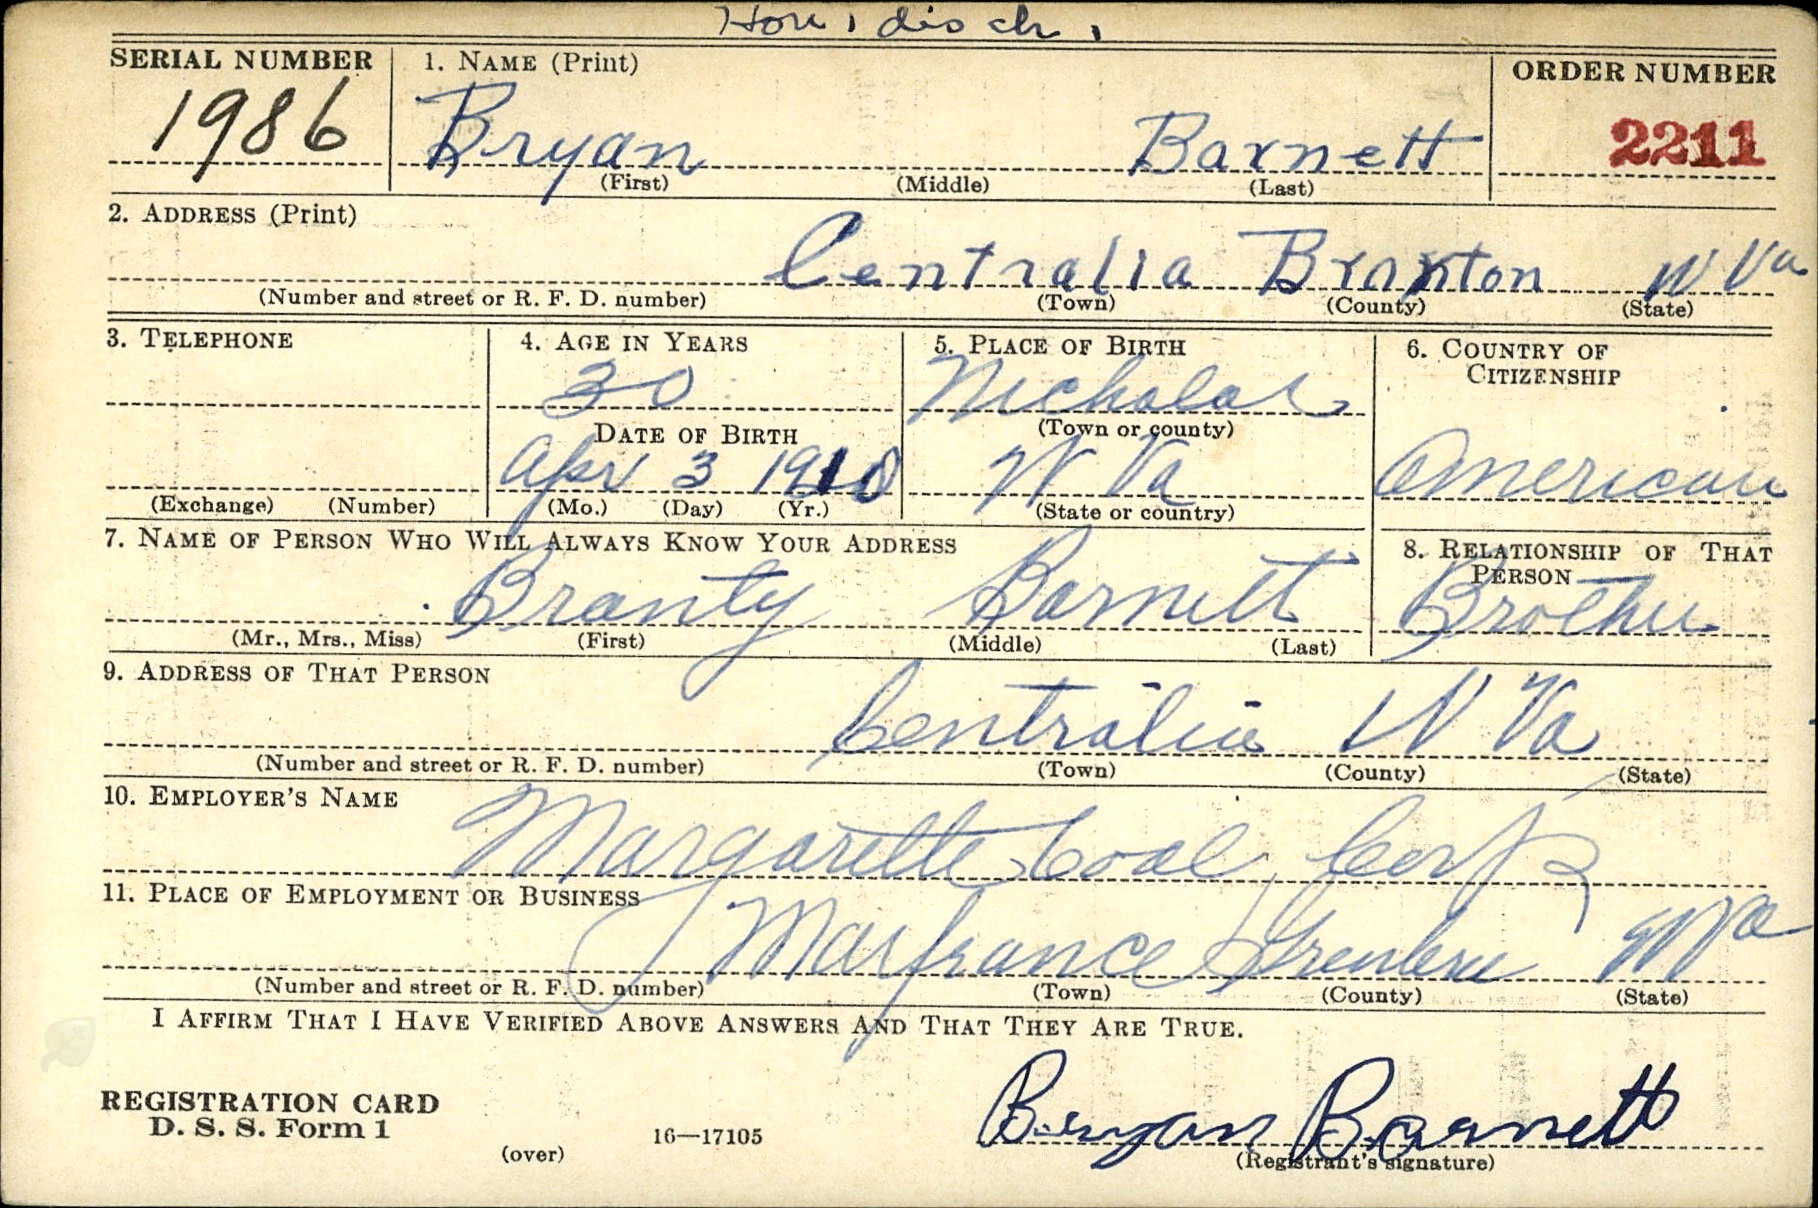 Hon. disch.
SERIAL NUMBER 1. NAME (Print) ORDER NUMBER
1986 Bryan Barnett 2211
(First) (Middle) (Last)
2. ADDRESS (Print)
Centralia Braxton W Va
(Number and street or R. F. D. number) (Town) (County) (State)
3. TELEPHONE 4. AGE IN YEARS 5. PLACE OF BIRTH 6. COUNTRY OF CITIZENSHIP
30 Nicholas
DATE OF BIRTH (Town or county)
Apr 3 1910 W Va American
(Exchange) (Number) (Mo.) (Day) (Yr.) (State or country)
7. NAME OF PERSON WHO WILL ALWAYS KNOW YOUR ADDRESS 8. RELATIONSHIP OF THAT PERSON
Branty Barnett Brother
(Mr., Mrs., Miss) (First) (Middle) (Last)
9. ADDRESS OF THAT PERSON
Centralia W Va
(Number and street or R. F. D. number) (Town) (County) (State)
10. EMPLOYER'S NAME
Margarette Coal Corp
11. PLACE OF EMPLOYMENT OR BUSINESS
Marfrance W Va
(Number and street or R. F. D. number) (Town) (County) (State)
I AFFIRM THAT I HAVE VERIFIED ABOVE ANSWERS AND THAT THEY ARE TRUE.
REGISTRATION CARD
D. S. S. Form 1
(over) 16—17105
Bryan Barnett
(Registrant's signature)